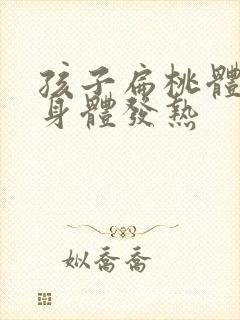 孩子扁桃體
身體發熱
姒喬喬